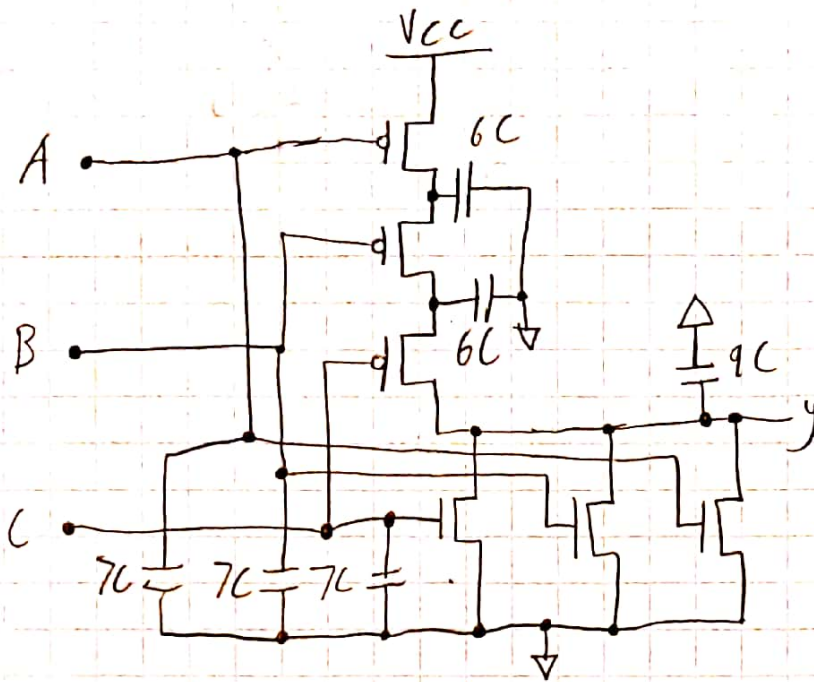 VCC
6C
A
6C
B
9C
y
C
7C
7C
7C